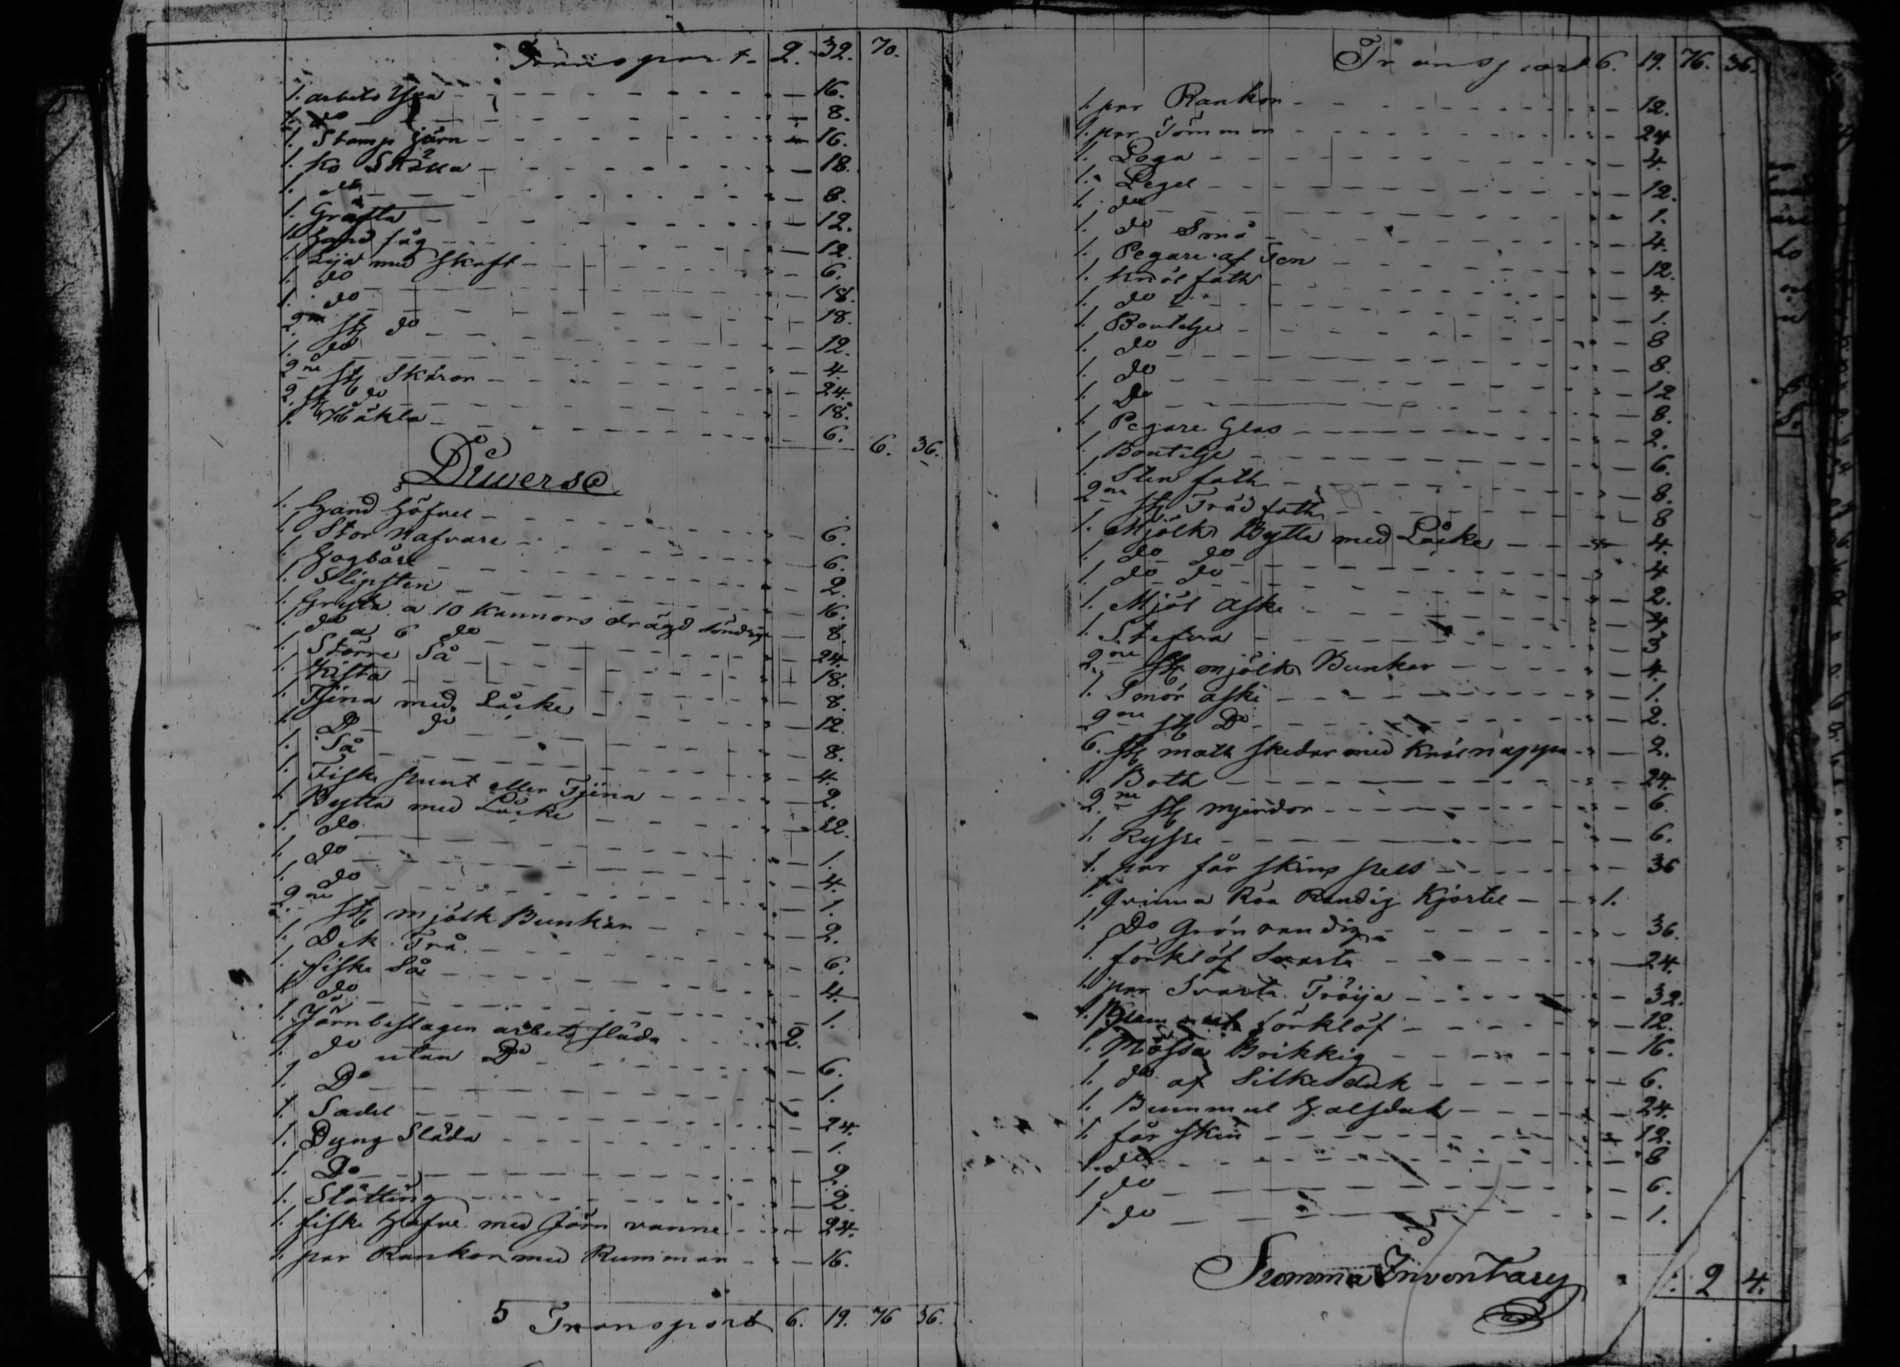 Transport 2. 32. 70.
1. arbets Yxa 16.
1. do 8.
1. Stamp Järn 16.
1. Ko Skälla 18.
1. do 8.
1. Gräfta 12.
1. Hand såg 12.
1. Lija med Skaft 6.
1. do 18.
1. do 18.
2ne st do 12.
1. do 4.
2ne st Skäror 24.
2. st do 18.
1. Häkla 6.
6. 36.
Diverse
1. Hand Höfvel 6.
1. Stor Nafvare 6.
1. Hogbåre 2.
1. Slipsten 16.
1. Gryta a 10 Kannors drägd söndrig 8.
1. do a 6 do 24.
1. Större Så 18.
1. Kista 8.
1. Tjina med Låcke 12.
1. Do do 8.
1. Så 4.
1. Fiske spunt eller Tjina 2.
1. Bytta med Låcke 22.
1. do 1.
1. do 4.
1. do 1.
2ne st mjölk Bunkar 2.
1. Dek Trå 6.
1. fiske Så 4.
1. do 1.
1. Järnbeslagen arbets släda 2.
1. do utan Do 6.
1. Do 1.
1. Sadel 24.
1. Dyng Släda 1.
1. Do 2.
1. Slätting 2.
1. fiske Hafve med Järn vanne 24.
1. par Rankor med Rummor 16.
5 Transport 6. 19. 76 36.
Transport 6. 19. 76. 36.
1. par Rankor 12.
1. par Tömmor 24
1. Loga 4.
1. Legel 12.
1. do 1.
1. do Små 4.
1. Pegare af Ten 12.
1. Knöl fath 4.
1. do 1.
1. Boutelje 8
1. do 8.
1. do 12
1. Do 8.
1. Pegare Glas 2.
1. Boutelje 6.
1. Sten fath 8.
2ne st Träd fath 8
1. Mjölk Bytta med Låcke 4.
1. do do 4
1. do do 2.
1. Mjöl Aske 4
1. Stefva 3
2ne st mjölk Bunkar 4.
1. Smör aske 1.
2ne st Do 2.
6. st math skedar med Knifsnappa 2.
1. Both 24.
2ne st mjerdor 6.
1. Rysse 6.
1. par får skins pels 36
1. Qvinna Röa Randig Kjortel 1.
1. Do Grön randig 36.
1. förklöf Svarta 24.
1. par Svarta Tröija 32.
1. förklöf 12.
1. Mössa Brikkig 16.
1. do af Silkes duk 6.
1. Bummul Halsduk 24.
1. får Skin 12.
1. do 8
1. do 6.
1. do 1.
Summa Inventary 2 4.